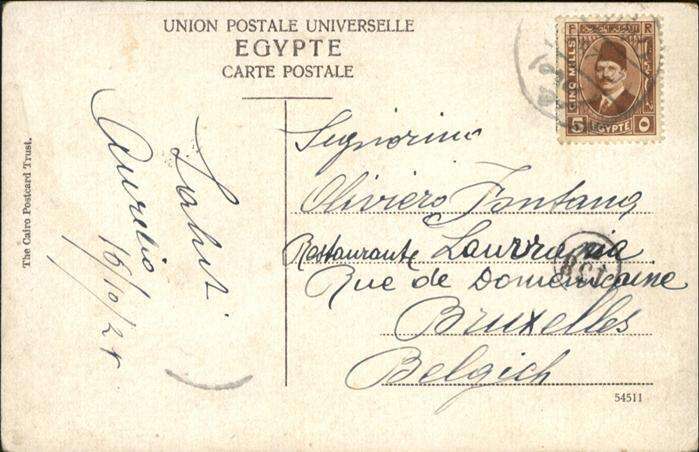 UNION POSTALE UNIVERSELLE
EGYPTE
CARTE POSTALE
CINQ MILLS
5 EGYPTE ٥
The Cairo Postcard Trust.
Aurelio
16/10/24
Signorino
Oliviero Fontana
Restaurante
Rue de Domenicaine
Bruxelles
Belgich
54511